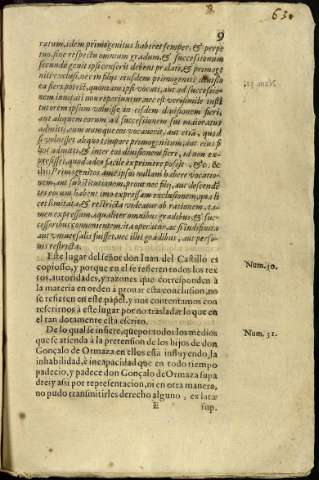 63.
9
ratum, idem primogenitus haberet semper, & perpe
tuo, sine respectu omnium graduum, & successionum
secundogenit ipsi censerit debent prælati, & primoge
niti exclusi, nec in filijs eiusdem primogeniti
ea fieri poterit, quoniam ipsi vocati, aut ad successio
nem inuitati non reperiuntur, nec est verisimile insti
tutorem vinculi voluisse in eisdem fieri,
aut aliquem eorum ad successionem sui maioratus
admitti, cum nunquam eos vocauerit, aut etiã, quod
si voluisset aliquo tempore primogenitum, aut eius fi
lios admitti, & inter eos fieri, id non ex-
pressisset, quod adeo facile exprimere posset, &c. &
ibi: Primogenitus autẽ ipsius nullam habere vocatio-
nem, aut substitutionem, prout nec filij, aut descendẽ
tes eorum habent imo expressam exclusionem, quæ li
cet limitata, & restricta videatur ab rationem, ta-
men expressam, æqualiter omnibus gradibus, & suc-
cessoribus conuenientem, ita operatur, ac si indefinita
aut vniuersalis fuisset, nec illi gradibus, aut perso-
nis restricta.
Este lugar del señor don Iuan del Castillo es
copiosso, y porque en el se refieren todos los tex
tos, autoridades, y razones que corresponden à
la materia en orden à prouar esta conclusion, no
se refieren en este papel, y nos contentamos con
referirnos à este lugar por no trasladar lo que en
el tan dotamente està escrito.
Num. 30.
De lo qual se infiere, que por todos los medios
que se atienda à la pretension de los hijos de don
Gonçalo de Ormaza en ellos està influyendo la
inhabilidad, è incapacidad que en todo tiempo
padecio, y padece don Gonçalo de Ormaza su pa
dre, y assi por representacion, ni en otra manera,
no pudo transmitirles derecho alguno, ex latæ
Num. 31.
E
sup.